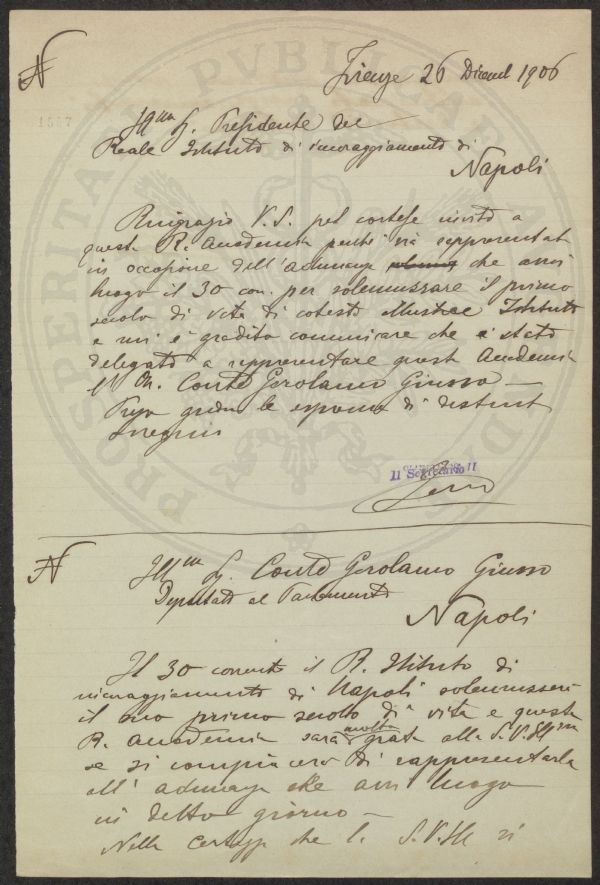 Firenze 26 Dicembre 1906
Ill.mo Sg. Presidente del
Reale Istituto di incoraggiamento di
Napoli
Ringrazio V.S. pel cortese invito a
questa R. Accademia perché sia rappresentata
in occasione dell'adunanza che avrà
luogo il 30 con. per solennizzare il primo
secolo di vita di cotesto Illustre Istituto
e mi è gradito comunicare che è stato
delegato a rappresentare questa Accademia
l'On. Conte Gerolamo Giusso —
gradire le espressioni di distinti
ossequi
Il Segretario
Ill.mo Sg. Conte Gerolamo Giusso
Deputato al Parlamento
Napoli
Il 30 corrente il R. Istituto di
incoraggiamento di Napoli solennizzerà
il suo primo secolo di vita e questa
R. Accademia sarà molto grata alla S.V. Ill.ma
se si compiacerà di rappresentarla
all'adunanza che avrà luogo
in detto giorno —
Nella certezza che la S.V. Ill. si